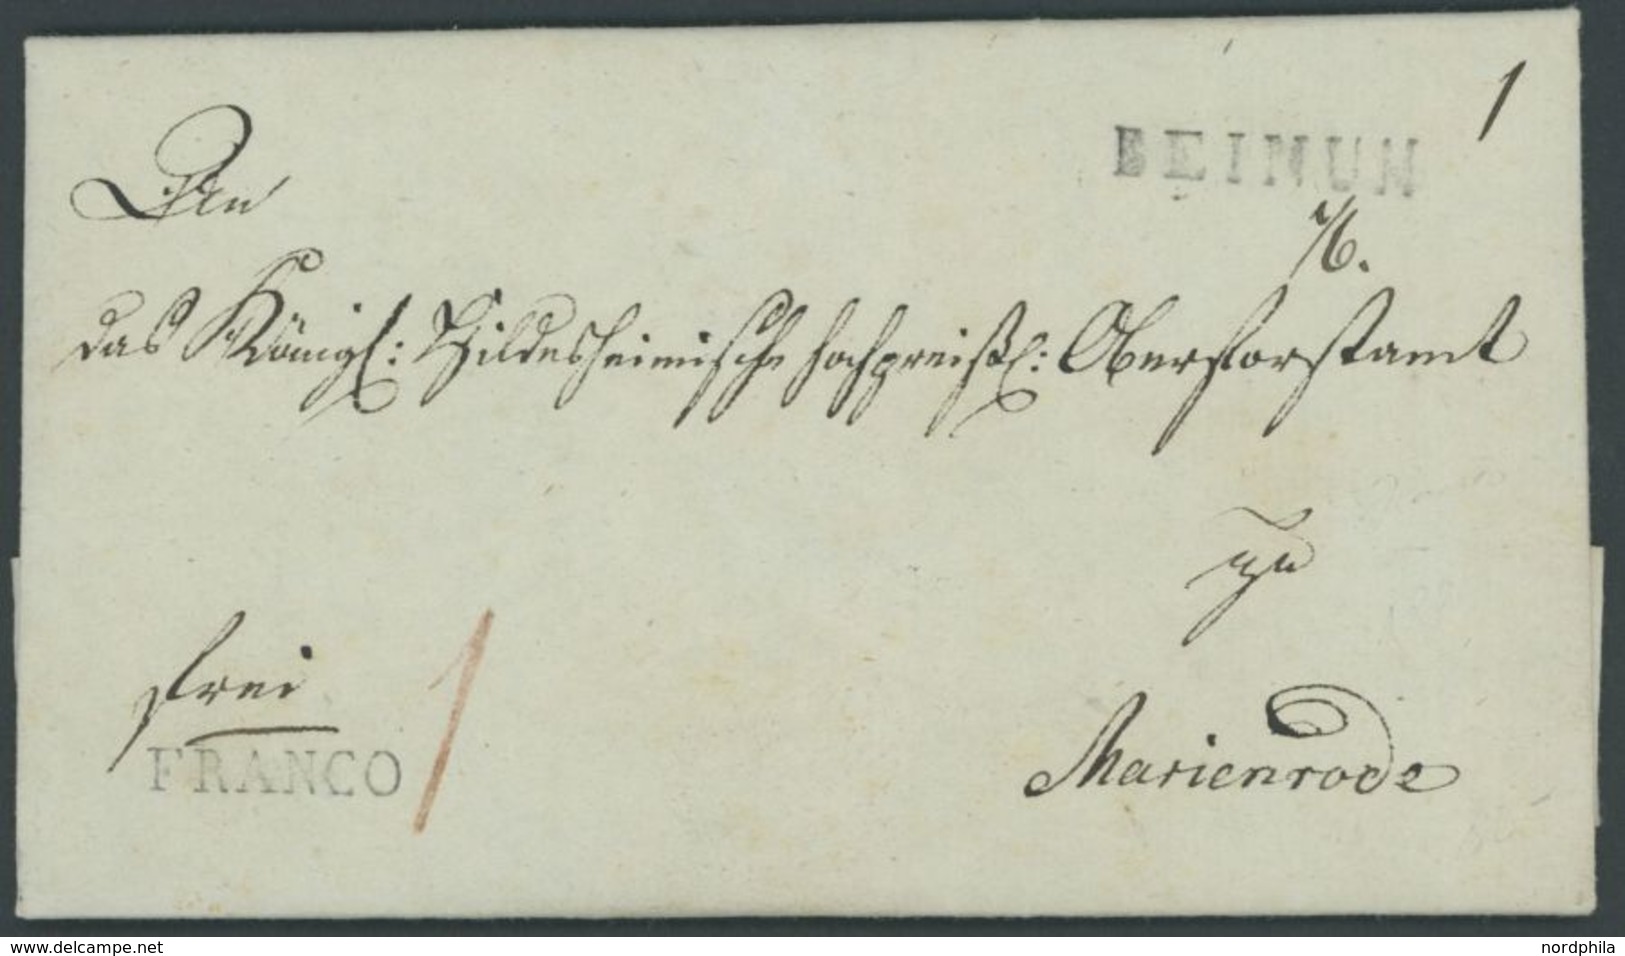 1
BEINUM
7/6.
An
das Königl: Hildesheimische hochpreißl: Oberforstamt
zu
frei
1
FRANCO
Marienrode
www.delcampe.net
nordphila